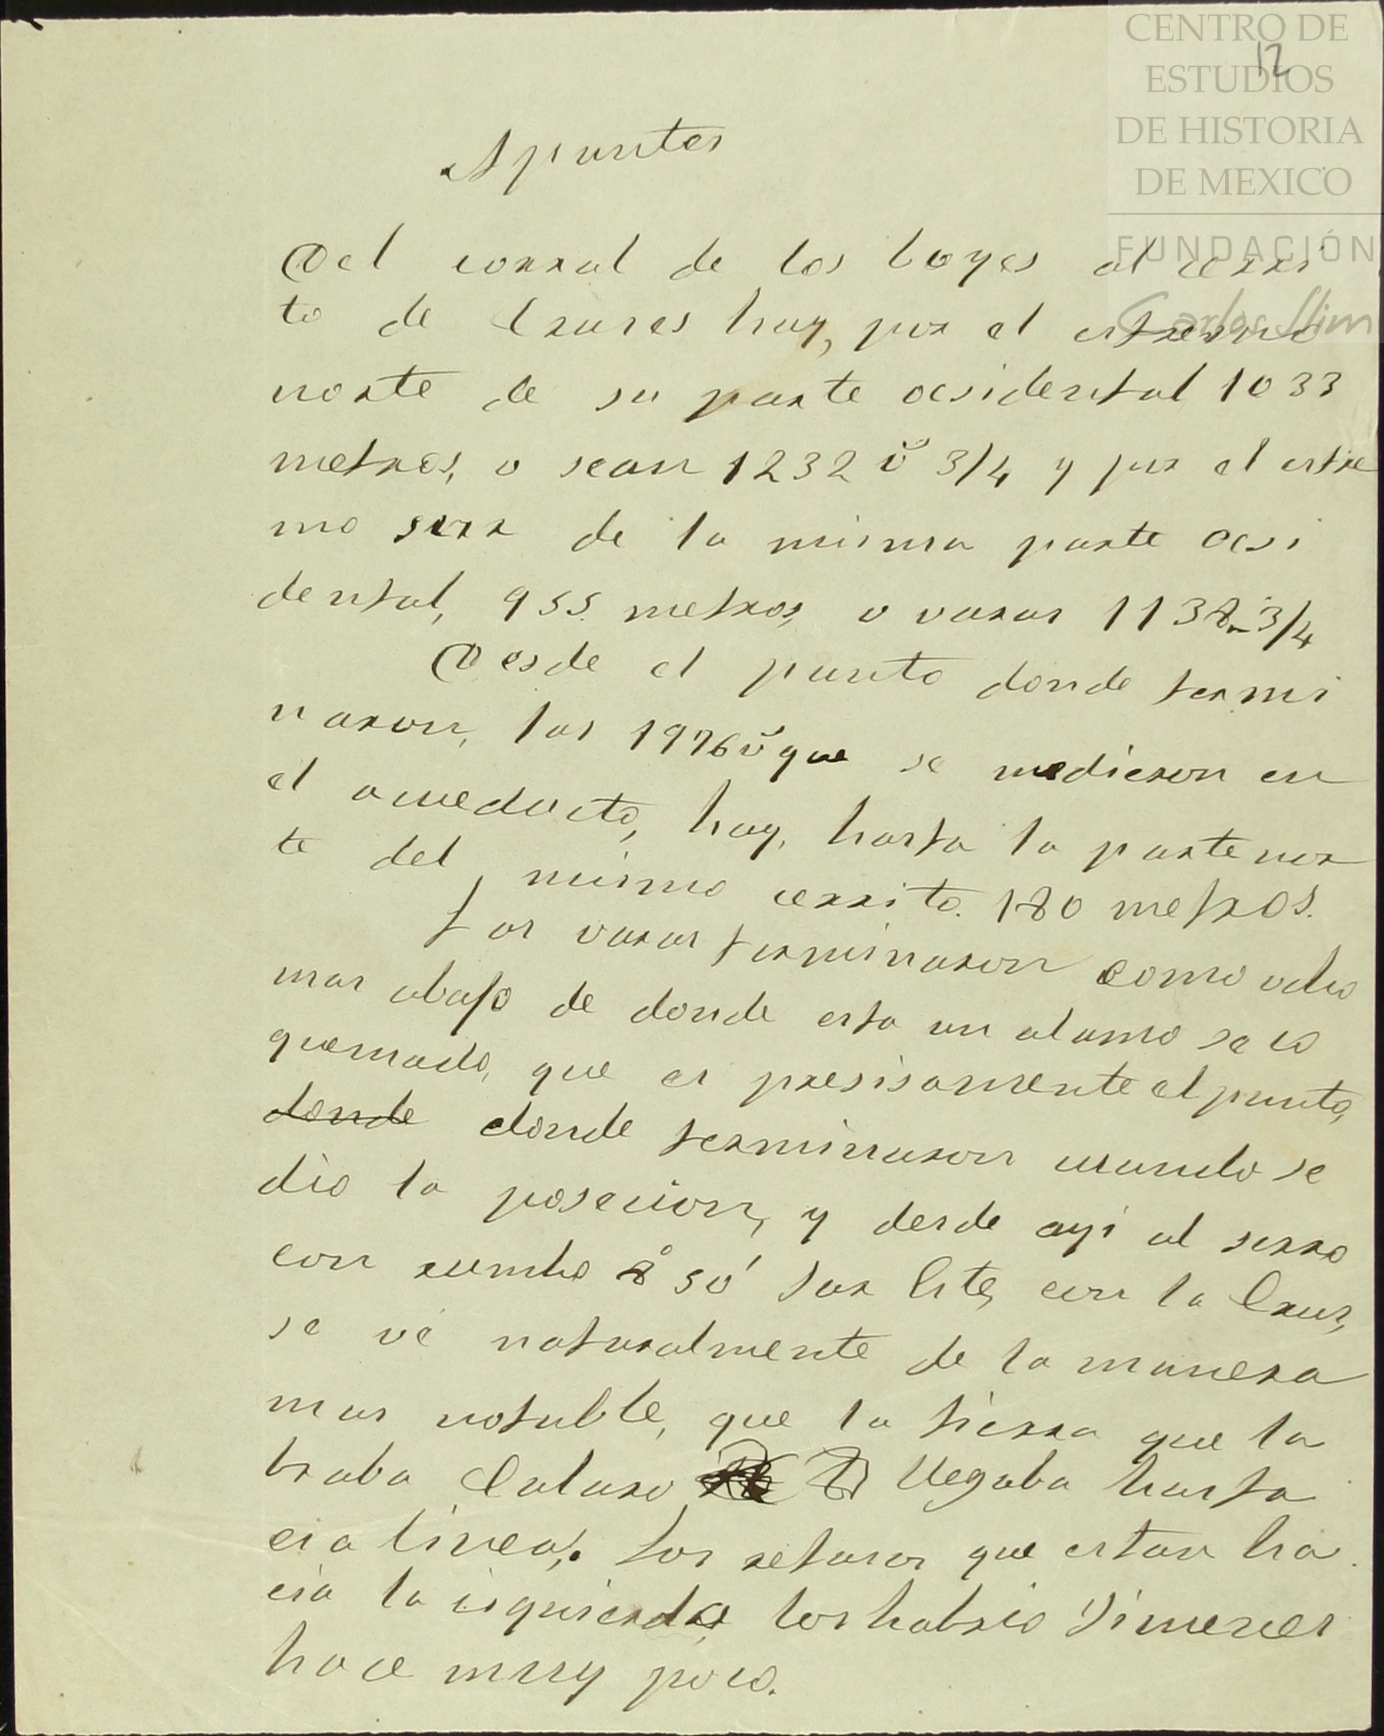 CENTRO DE
ESTUDIOS
DE HISTORIA
DE MEXICO
FUNDACIÓN
Carlos Slim
12
Apuntes
Del corral de los boyes al cerri
to de Cruses hay, por el estremo
norte de su parte ocsidental 1033
metros, o sean 1232 v 3/4 y por el estre
mo surr de la misma parte ocsi
dental, 955 metros, o varas 1138-3/4
Desde el punto donde termi
naron, las 1976 v que se medieron en
el acueducto, hay, hasta la parte nor
te del mismo cerrito. 180 metros.
Las varas terminaron como ocho
mas abajo de donde esta un alamo seco
quemado, que es presisamente el punto,
donde donde terminaron cuando se
dio la posecion, y desde ayi al serro
con rumbo 8° 50' Sur Este, con la Crus,
se vé naturalmente de la manera
mas notable, que la tierra que la
braba Calaso llegaba hasta
esa linea,. Los retasos que estan ha
cia la isquierda, los habrio Jimenes
hace muy poco.